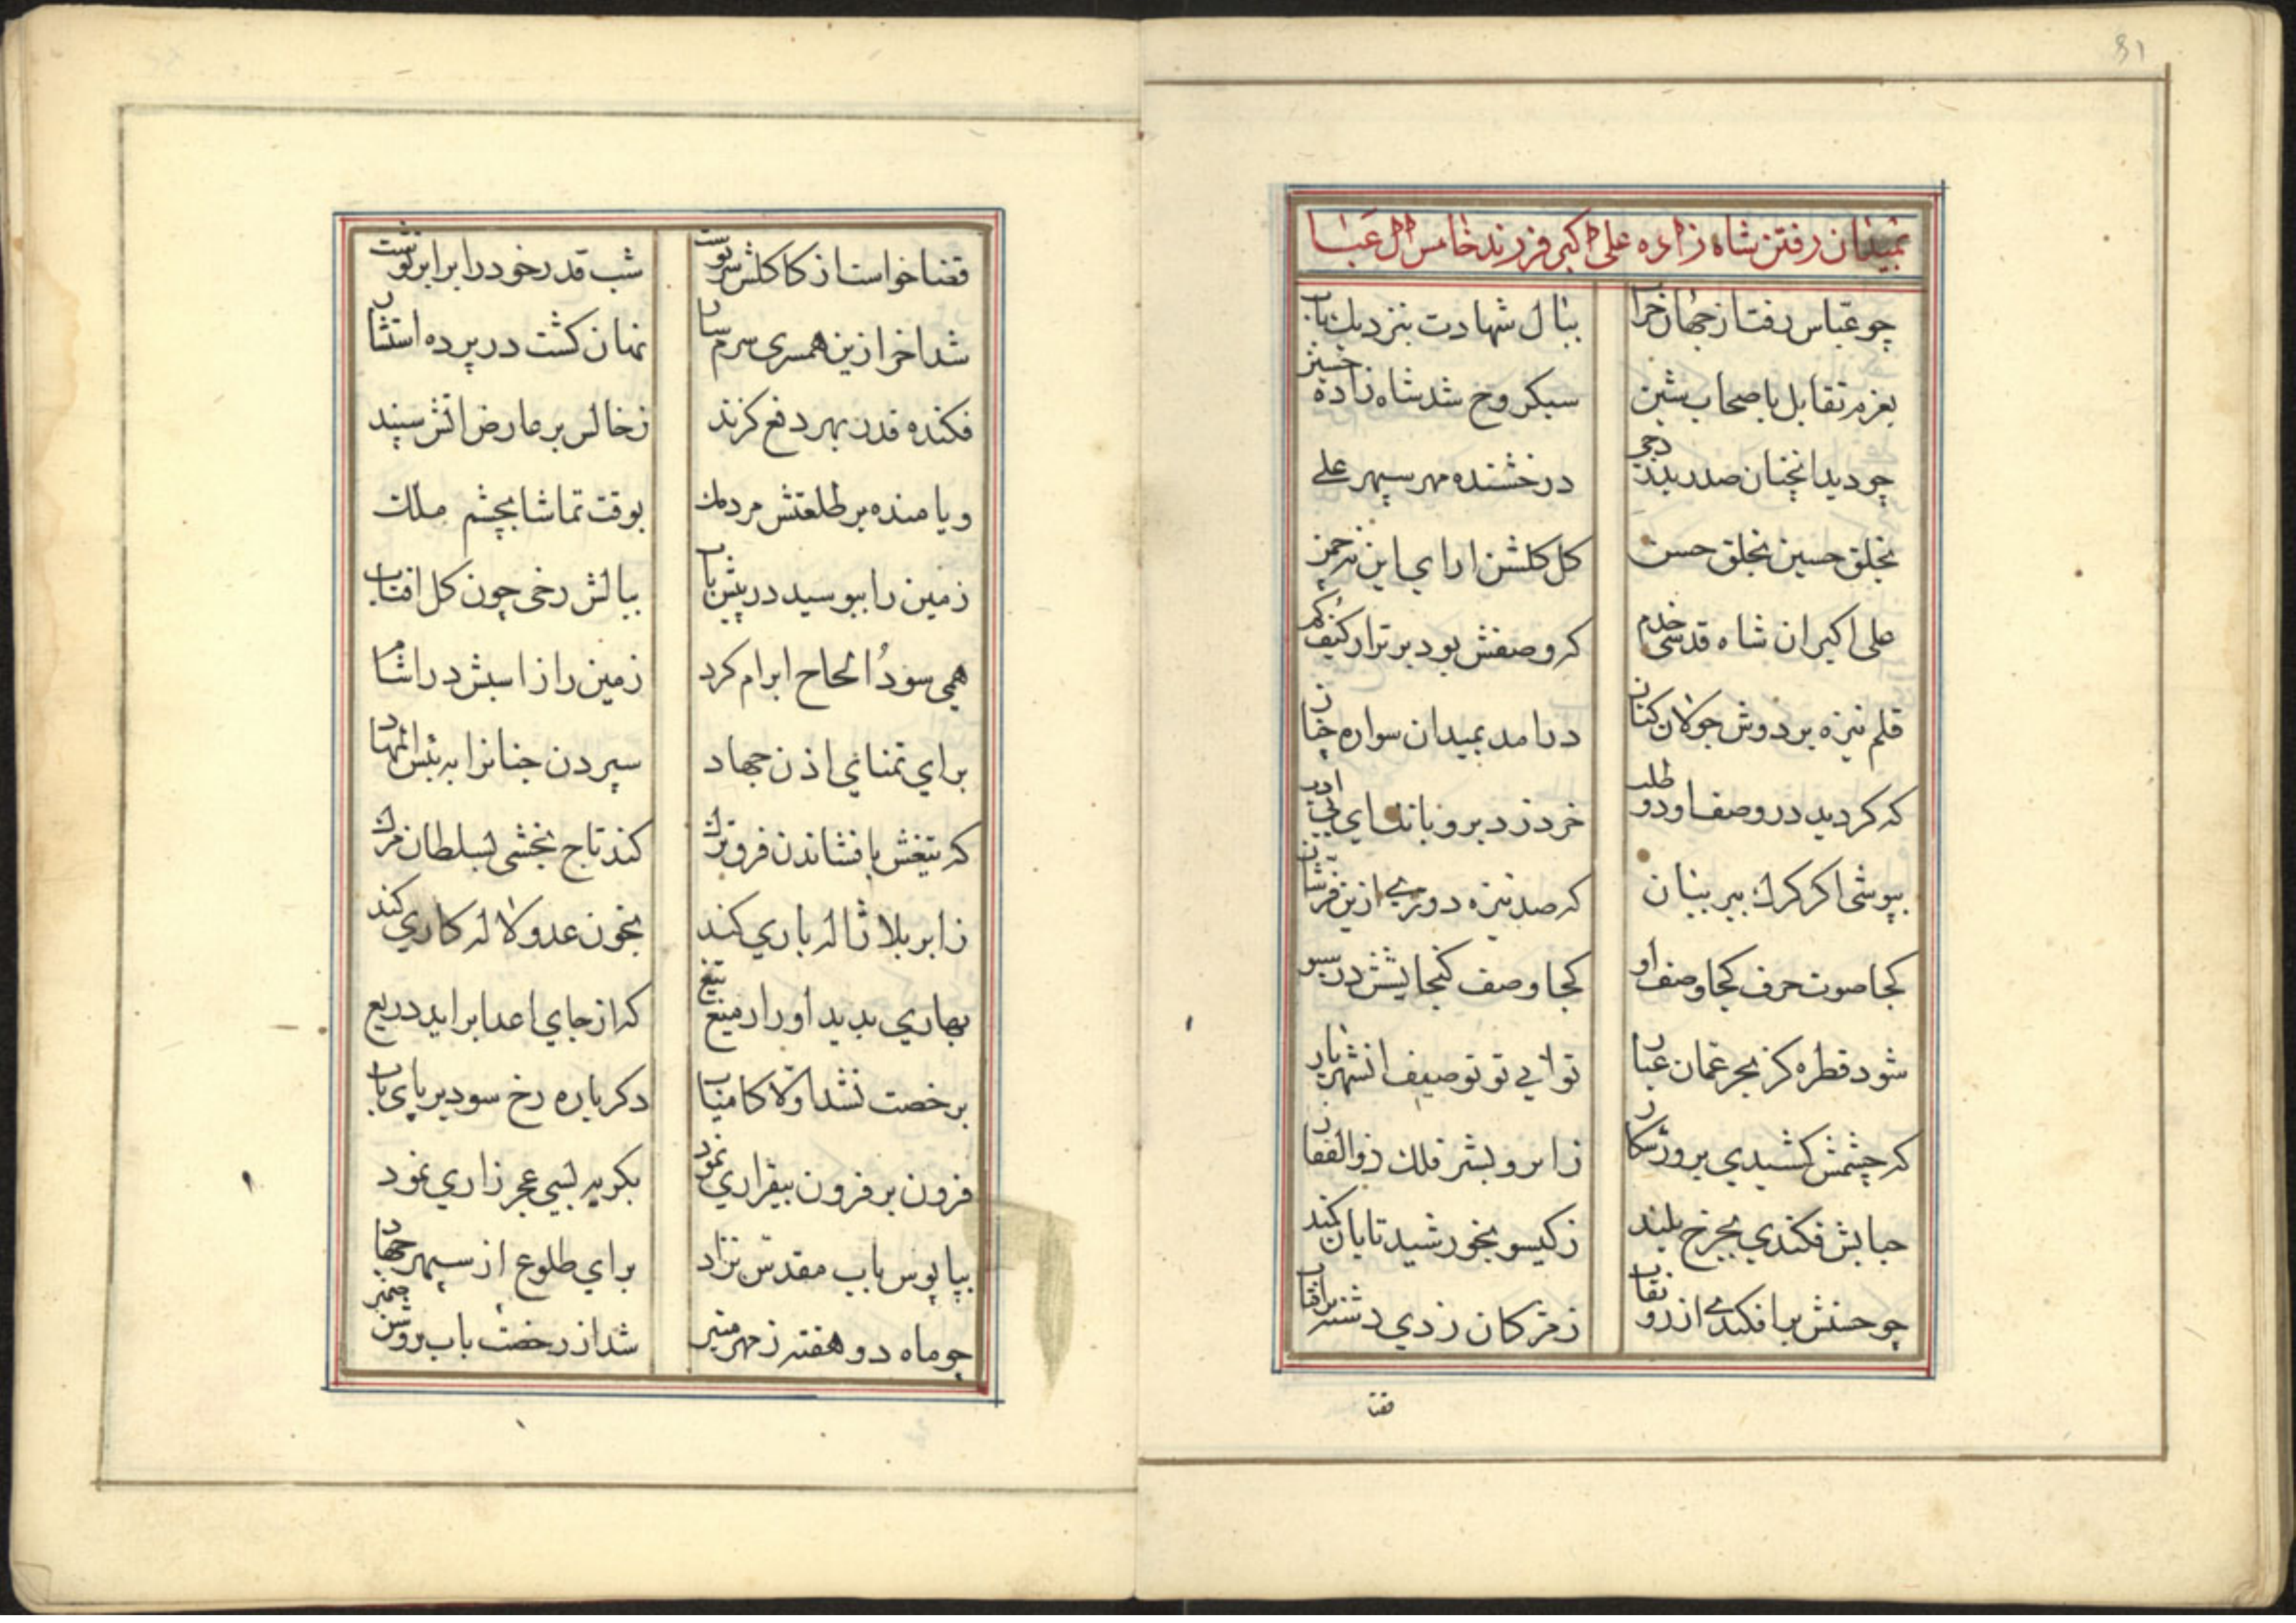 بمیدان رفتن شاه زاده علی اکبر فرزند خامس ال عبا
چو عباس رفت از جهان خراب ببال شهادت بنزدیک باب
بعزم تقابل باصحاب شین سبکروح شد شاه زاده حسین
چو دید انچنان صدر بدر دجی درخشنده مهر سپهر علی
بخلق حسین بخلق حسن کل کلشن ارای این نه چمن
علی اکبر ان شاه قدسی خدم که وصفش بود برتر از کیف کم
قلم نیزه بر دوش جولان کنان درامد بمیدان سواره چنان
که کردید در وصف او دو طلب خرد زد برو بانک ای بی ادب
بپوشی اکر کرک ببر بیان که صد نیزه دوری ازین فرشان
کجا صوت حرف کجا وصف او کجا وصف کنجایشش در سبو
شود قطره کز بحر عمان عبار توانی تو توصیف انشهریار
که چشمش کشیدی بروز شکار ز ابرو بشیر فلک ذوالفقار
حبابش فکندی بچرخ بلند ز کیسو بخورشید تابان کمند
چو حسنش برافکندی از رو نقاب ز مژکان زدی دشنه بر افتاب
قضا
81
قضا خواست از کاکلش سر نوشت شب قدر خود را برابر نوشت
شد اخر ازین همسری شرمسار نهان کشت در پرده استتار
فکنده قدر بهر دفع کزند ز خالش بر عارض اتش سپند
و یا مانده بر طلعتش مردمک بوقت تماشا بچشم ملک
زمین را ببوسید در پیش باب ببالش رخی چون کل افتاب
همی سود الحاح ابرام کرد زمین را ز اسبش در اشام
برای تمنای اذن جهاد سپردن جنانرا به بئس المهاد
که تیغش بافشاندن فرق ترک کند تاج بخشی بسلطان مرک
ز ابر بلا ژاله باری کند بخون عدو لاله کاری کند
بهاری بدید اورد ز میغ تیغ که از جای اعدا براید دریع
برخصت نشد اولا کامیاب دکر باره رخ سود بر پای باب
فزون بر فزون بیقراری نمود بکریه بسی عجز زاری نمود
بپا بوس باب مقدس نژاد برای طلوع از سپهر جهاد
چو ماه دو هفته ز مهر منیر شد از رخصت باب روشن ضمیر